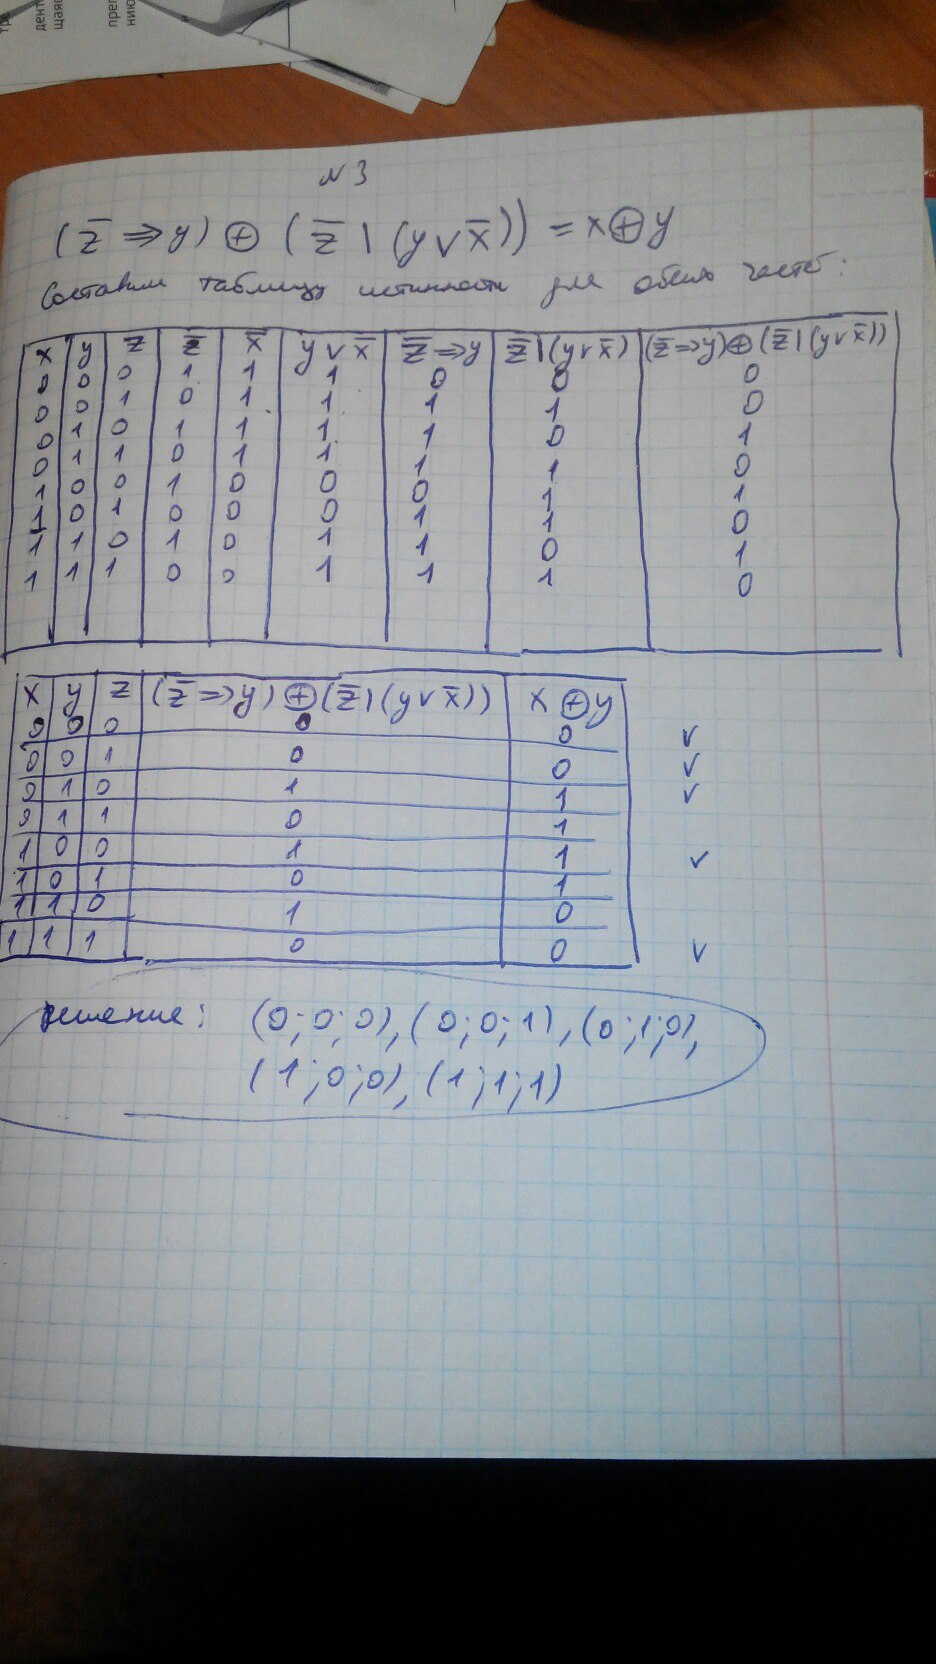 N 3
(z̅ ⇒ y) ⊕ (z̅ | (y ∨ x̅)) = x ⊕ y
Составим таблицу истинности для обеих частей:
x y z z̅ x̅ y ∨ x̅ z̅ ⇒ y z̅ | (y ∨ x̅) (z̅ ⇒ y) ⊕ (z̅ | (y ∨ x̅))
0 0 0 1 1 1 0 0 0
0 0 1 0 1 1 1 1 0
0 1 0 1 1 1 1 0 1
0 1 1 0 1 1 1 1 0
1 0 0 1 0 0 0 1 1
1 0 1 0 0 0 1 1 0
1 1 0 1 0 1 1 0 1
1 1 1 0 0 1 1 1 0
x y z (z̅ ⇒ y) ⊕ (z̅ | (y ∨ x̅)) x ⊕ y
0 0 0 0 0 v
0 0 1 0 0 v
0 1 0 1 1 v
0 1 1 0 1
1 0 0 1 1 v
1 0 1 0 1
1 1 0 1 0
1 1 1 0 0 v
решение: (0;0;0), (0;0;1), (0;1;0),
(1;0;0), (1;1;1)